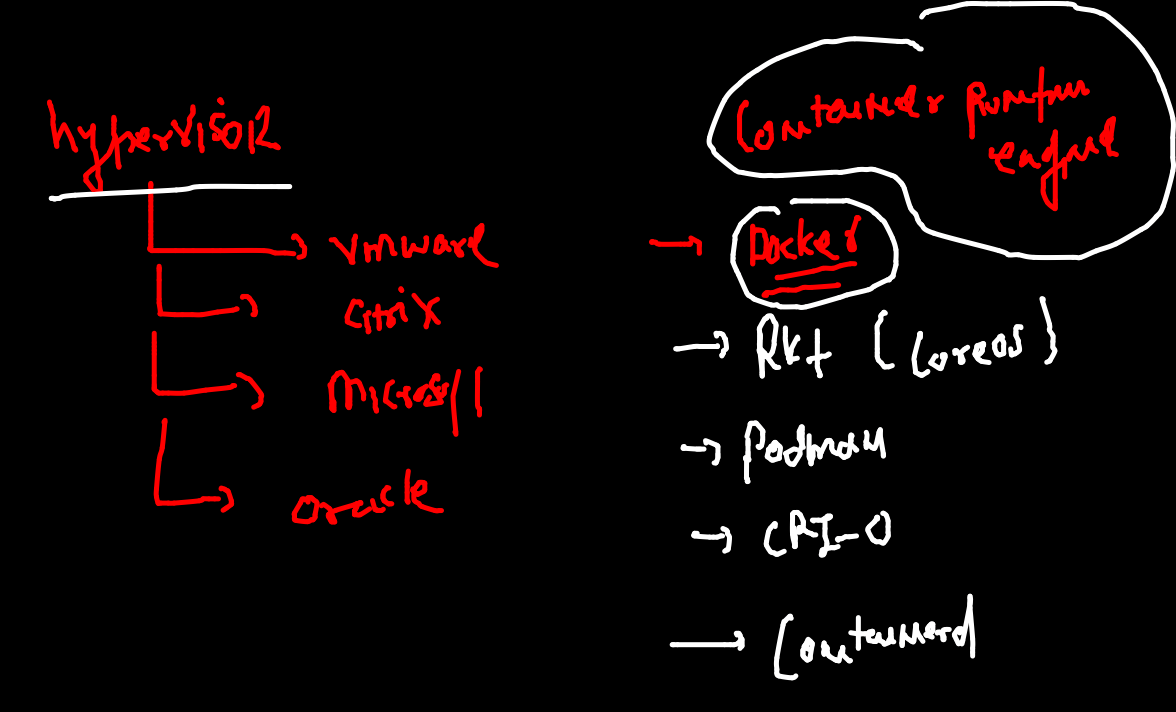 hypervisor
vmware
citrix
Microsoft
oracle
Container Runtime
engine
Docker
Rkt (Coreos)
Podman
CRI-O
Containerd